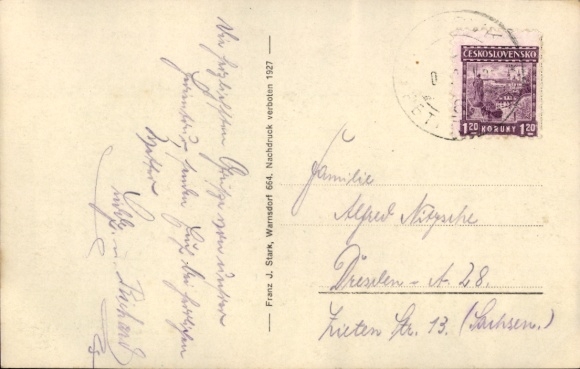 Die herzlichsten Grüße von unserer
senden Euch bei herrlichem
Wetter
u. Richard
Franz J. Stark, Warnsdorf 664. Nachdruck verboten 1927
ČESKOSLOVENSKO
1.20 KORUNY 1.20
Familie
Alfred Nitzsche
Dresden - A. 28.
Zieten Str. 13. (Sachsen.)